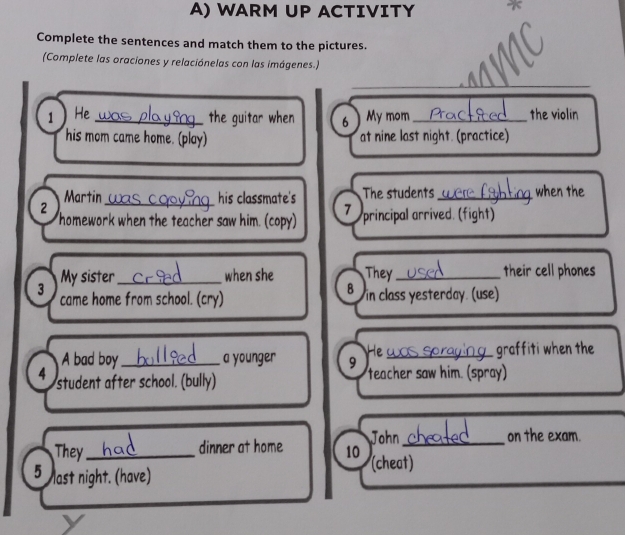 A) WARM UP ACTIVITY
Complete the sentences and match them to the pictures.
(Completa las oraciones y relaciónelas con las imágenes.)
1 He was playing the guitar when
his mom came home. (play)
2 Martin was copying his classmate's
homework when the teacher saw him. (copy)
3 My sister cried when she
came home from school. (cry)
4 A bad boy bullied a younger
student after school. (bully)
5 They had dinner at home
last night. (have)
6 My mom Practiced the violin
at nine last night. (practice)
7 The students were fighting when the
principal arrived. (fight)
8 They used their cell phones
in class yesterday. (use)
9 He was spraying graffiti when the
teacher saw him. (spray)
10 John cheated on the exam.
(cheat)